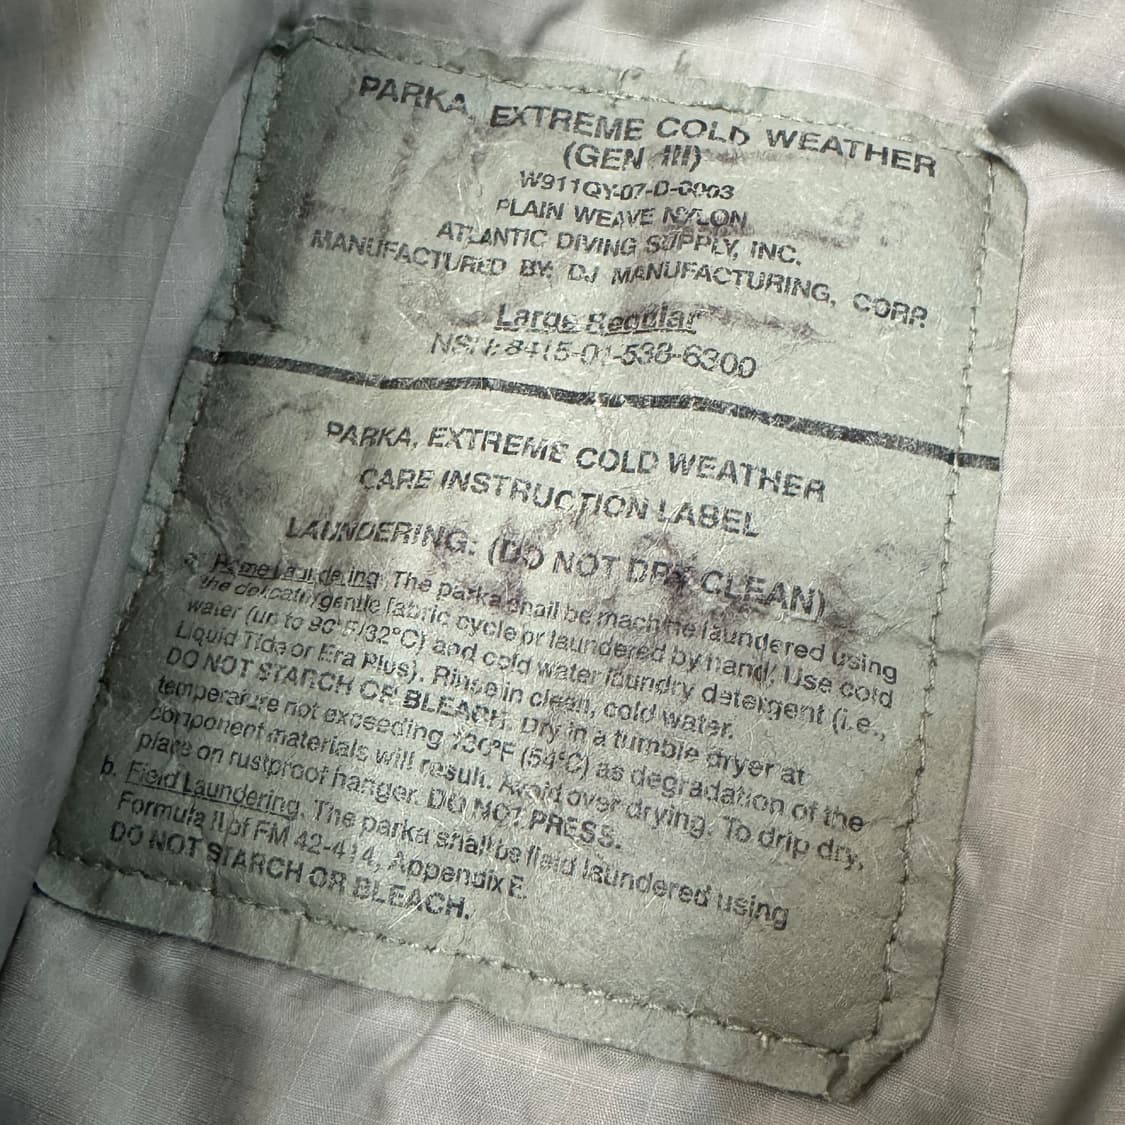 PARKA, EXTREME COLD WEATHER
(GEN III)
W911QY-07-D-0003
PLAIN WEAVE NYLON
ATLANTIC DIVING SUPPLY, INC.
MANUFACTURED BY: DJ MANUFACTURING, CORP.
Large Regular
NSN: 8415-01-538-6300
PARKA, EXTREME COLD WEATHER
CARE INSTRUCTION LABEL
LAUNDERING: (DO NOT DRY CLEAN)
a. Home Laundering: The parka shall be machine laundered using
the delicate/gentle fabric cycle or laundered by hand. Use cold
water (up to 90°F/32°C) and cold water laundry detergent (i.e.,
Liquid Tide or Era Plus). Rinse in clean, cold water.
DO NOT STARCH OR BLEACH. Dry in a tumble dryer at
temperature not exceeding 130°F (54°C) as degradation of the
component materials will result. Avoid over drying. To drip dry,
place on rustproof hanger. DO NOT PRESS.
b. Field Laundering. The parka shall be field laundered using
Formula II of FM 42-414, Appendix E.
DO NOT STARCH OR BLEACH.